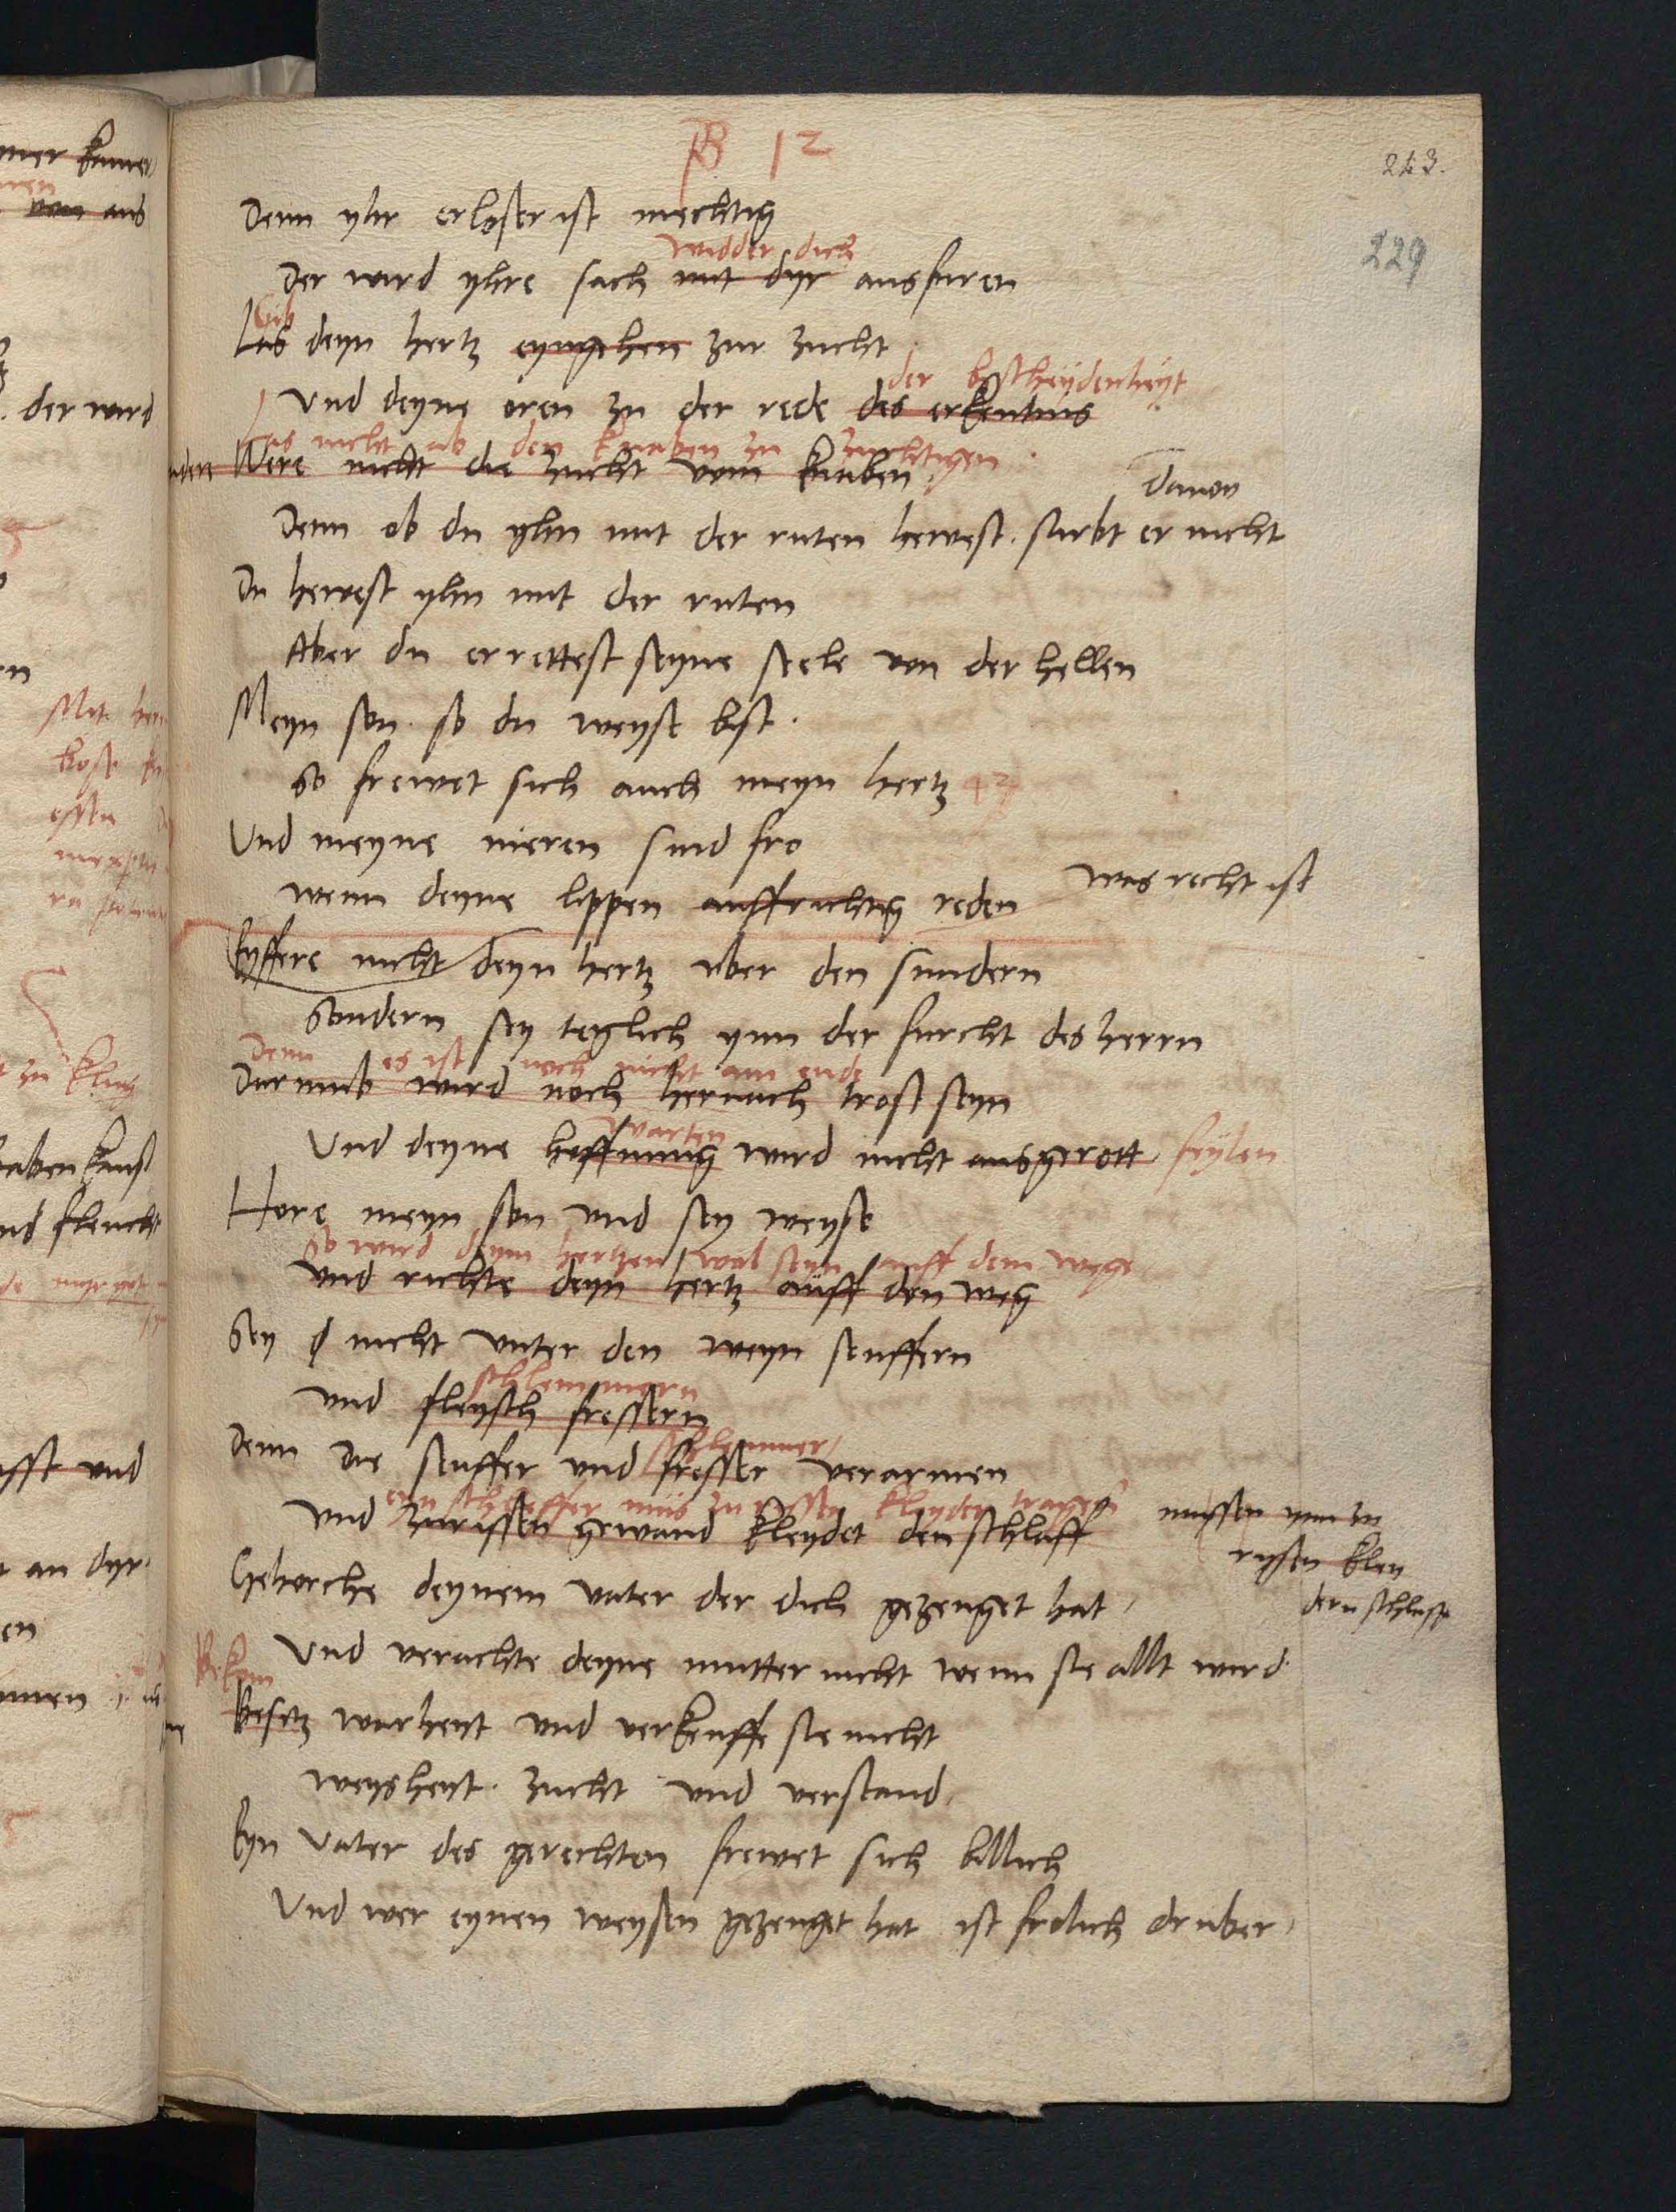 12
243.
229
Denn yhr erloser ist mechtig
widder dich
Der wird yhre sach mit dyr ausfuren
Gib
Las deyn hertz eyngehen zur zucht
der bescheydenheyt
Und deyne oren zu der rede des erkentnis
las nicht ab den knaben zu zuchtigen
Were nicht die zucht vom knaben
Davon
Denn ob du yhn mit der ruten hewest. stirbt er nicht
Du hewest yhn mit der ruten
Aber du errettest seyne seele von der hellen
Meyn son. so du weyse bist.
So frewet sich auch meyn hertz
Und meyne nieren sind fro
was recht ist
wenn deyne lippen auffrichtig reden
Eyffere nicht deyn hertz uber den sundern
Sondern sey teglich ynn der furcht des herrn
Denn es ist noch nicht am ende
Darumb wird noch hernach trost seyn
warten
Und deyne hoffnung wird nicht ausgerott feylen
Hore meyn son und sey weyse
So wird deym hertzen wol seyn auff dem wege
und richte deyn hertz auff den weg
Sey nicht unter den weyn seuffern
schlemmern
und fleysch fressern
schlemmer
Denn die seuffer und fresser verarmen
eyn scheffer mus zurissen kleyder tragen
und zurissen gewand kleydet den schlaff
mussen ynn zu
ryssen kley
dern schlaffe
Gehorche deynem vater der dich gezeuget hat
Und verachte deyne mutter nicht wenn sie allt wird
Besitz warheyt und verkeuffe sie nicht
weysheyt. zucht und verstand
Eyn vater des gerechten frewet sich billich
Und wer eynen weysen gezeuget hat ist frolich druber